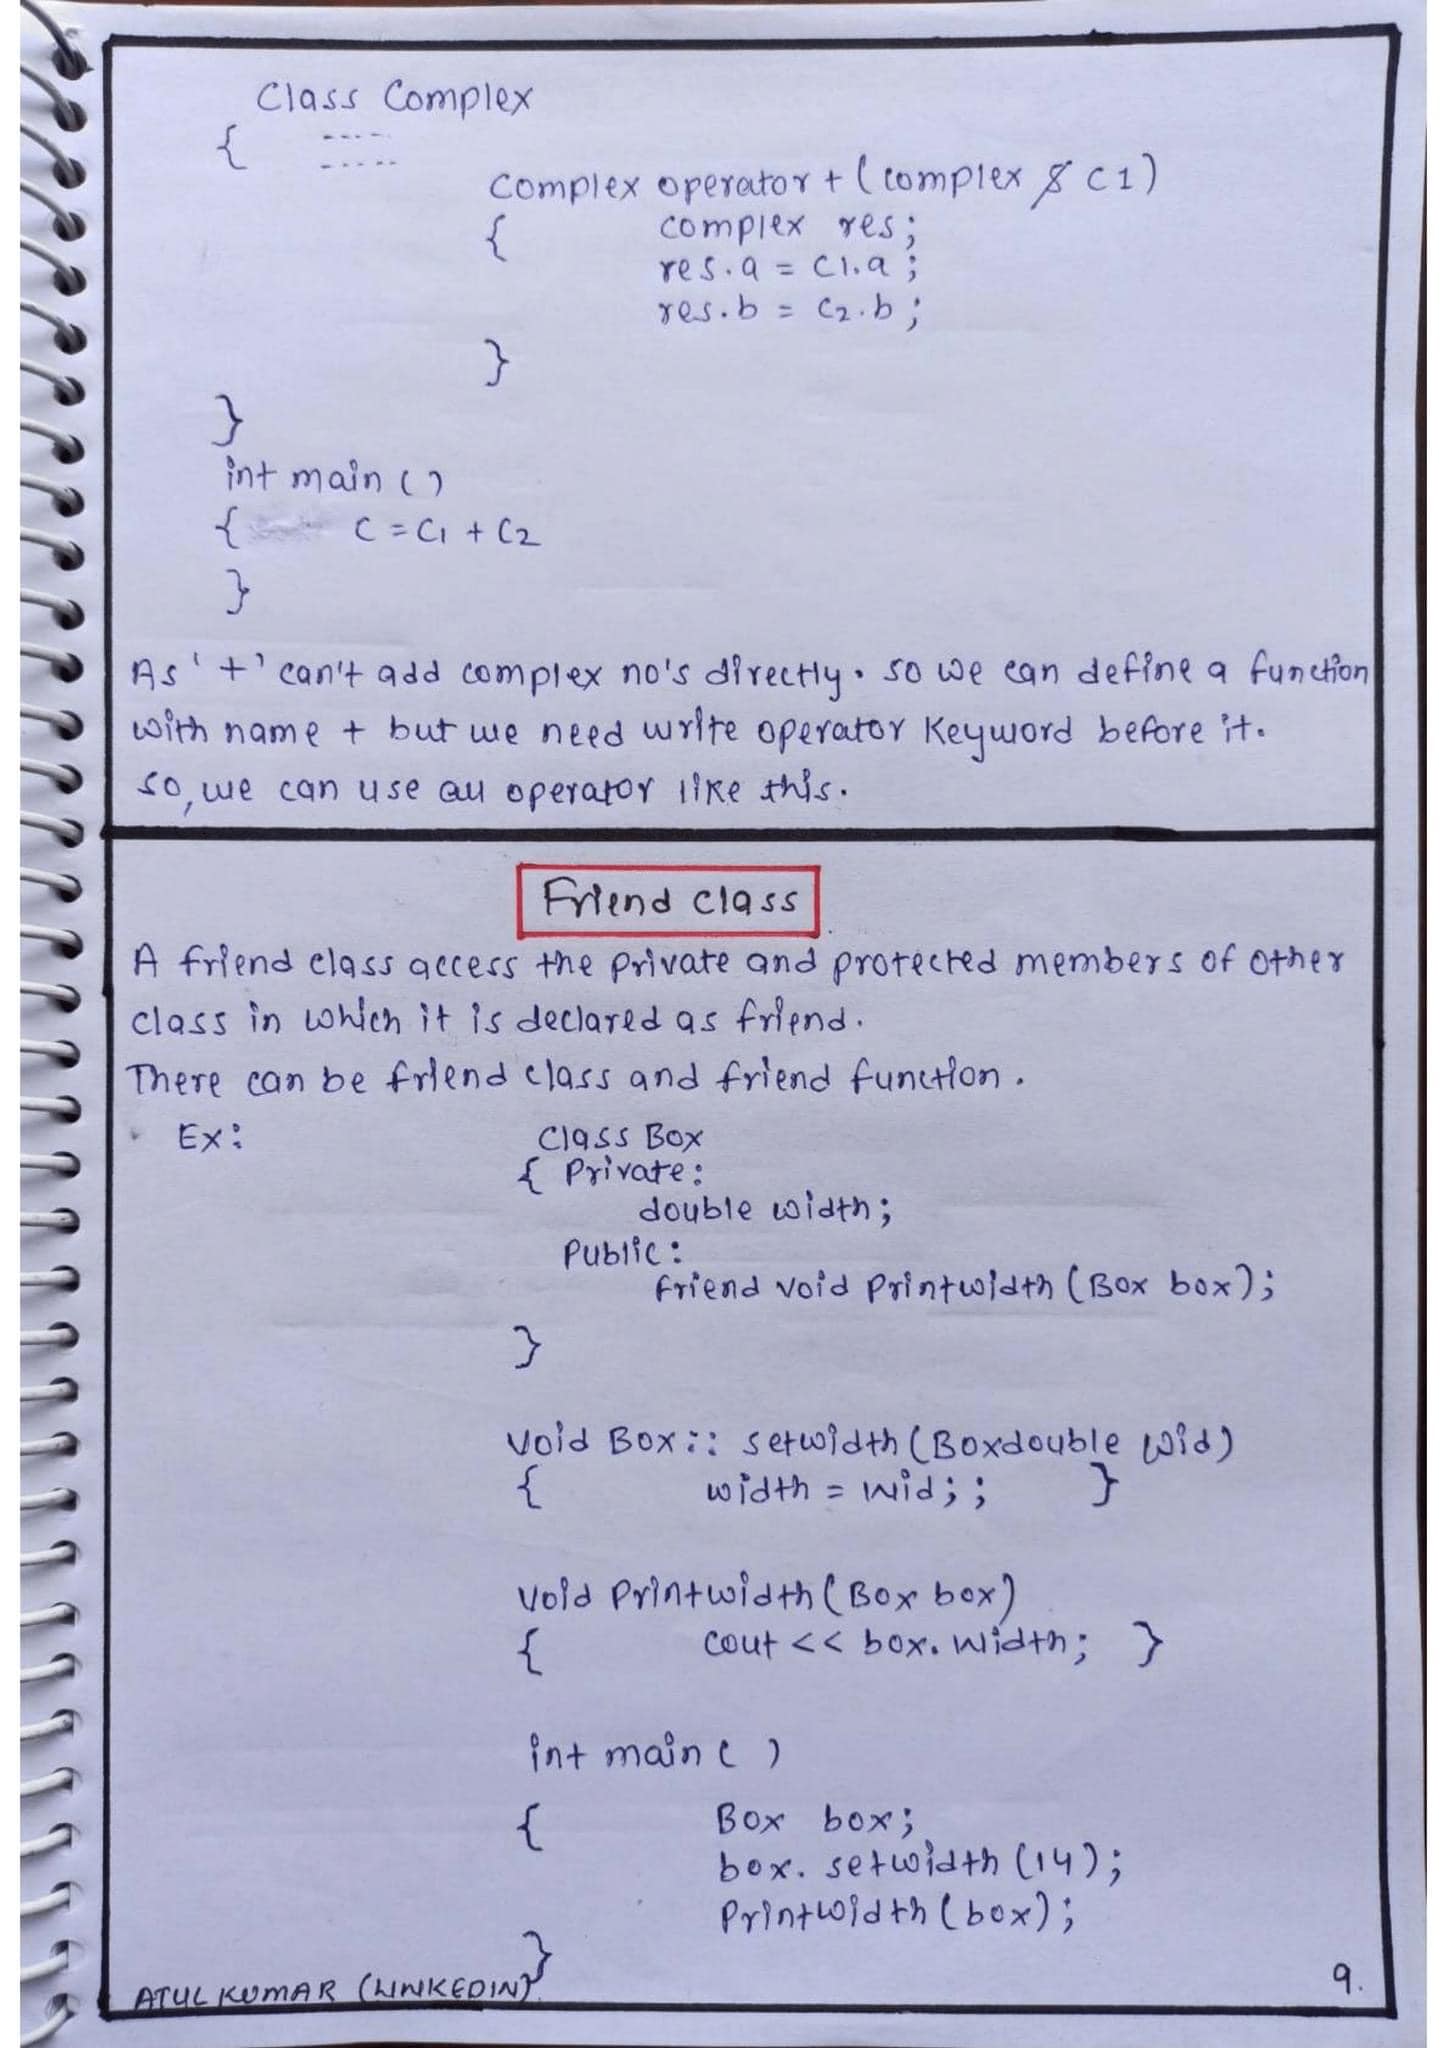 Class Complex
{ -----
-----
Complex operator + (complex & c1)
{ complex res;
res.a = C1.a ;
res.b = C2.b ;
}
}
int main ()
{ C = C1 + C2
}
As '+' can't add complex no's directly. so we can define a function
with name + but we need write operator keyword before it.
so, we can use all operator like this.
Friend class
A friend class access the private and protected members of other
class in which it is declared as friend.
There can be friend class and friend function.
Ex: Class Box
{ Private:
double width;
Public:
friend void Printwidth (Box box);
}
Void Box:: setwidth (Boxdouble wid)
{ width = wid; ; }
Void Printwidth (Box box)
{ cout << box. width; }
int main ( )
{ Box box;
box. setwidth (14);
Printwidth (box);
}
ATUL KUMAR (LINKEDIN).
9.